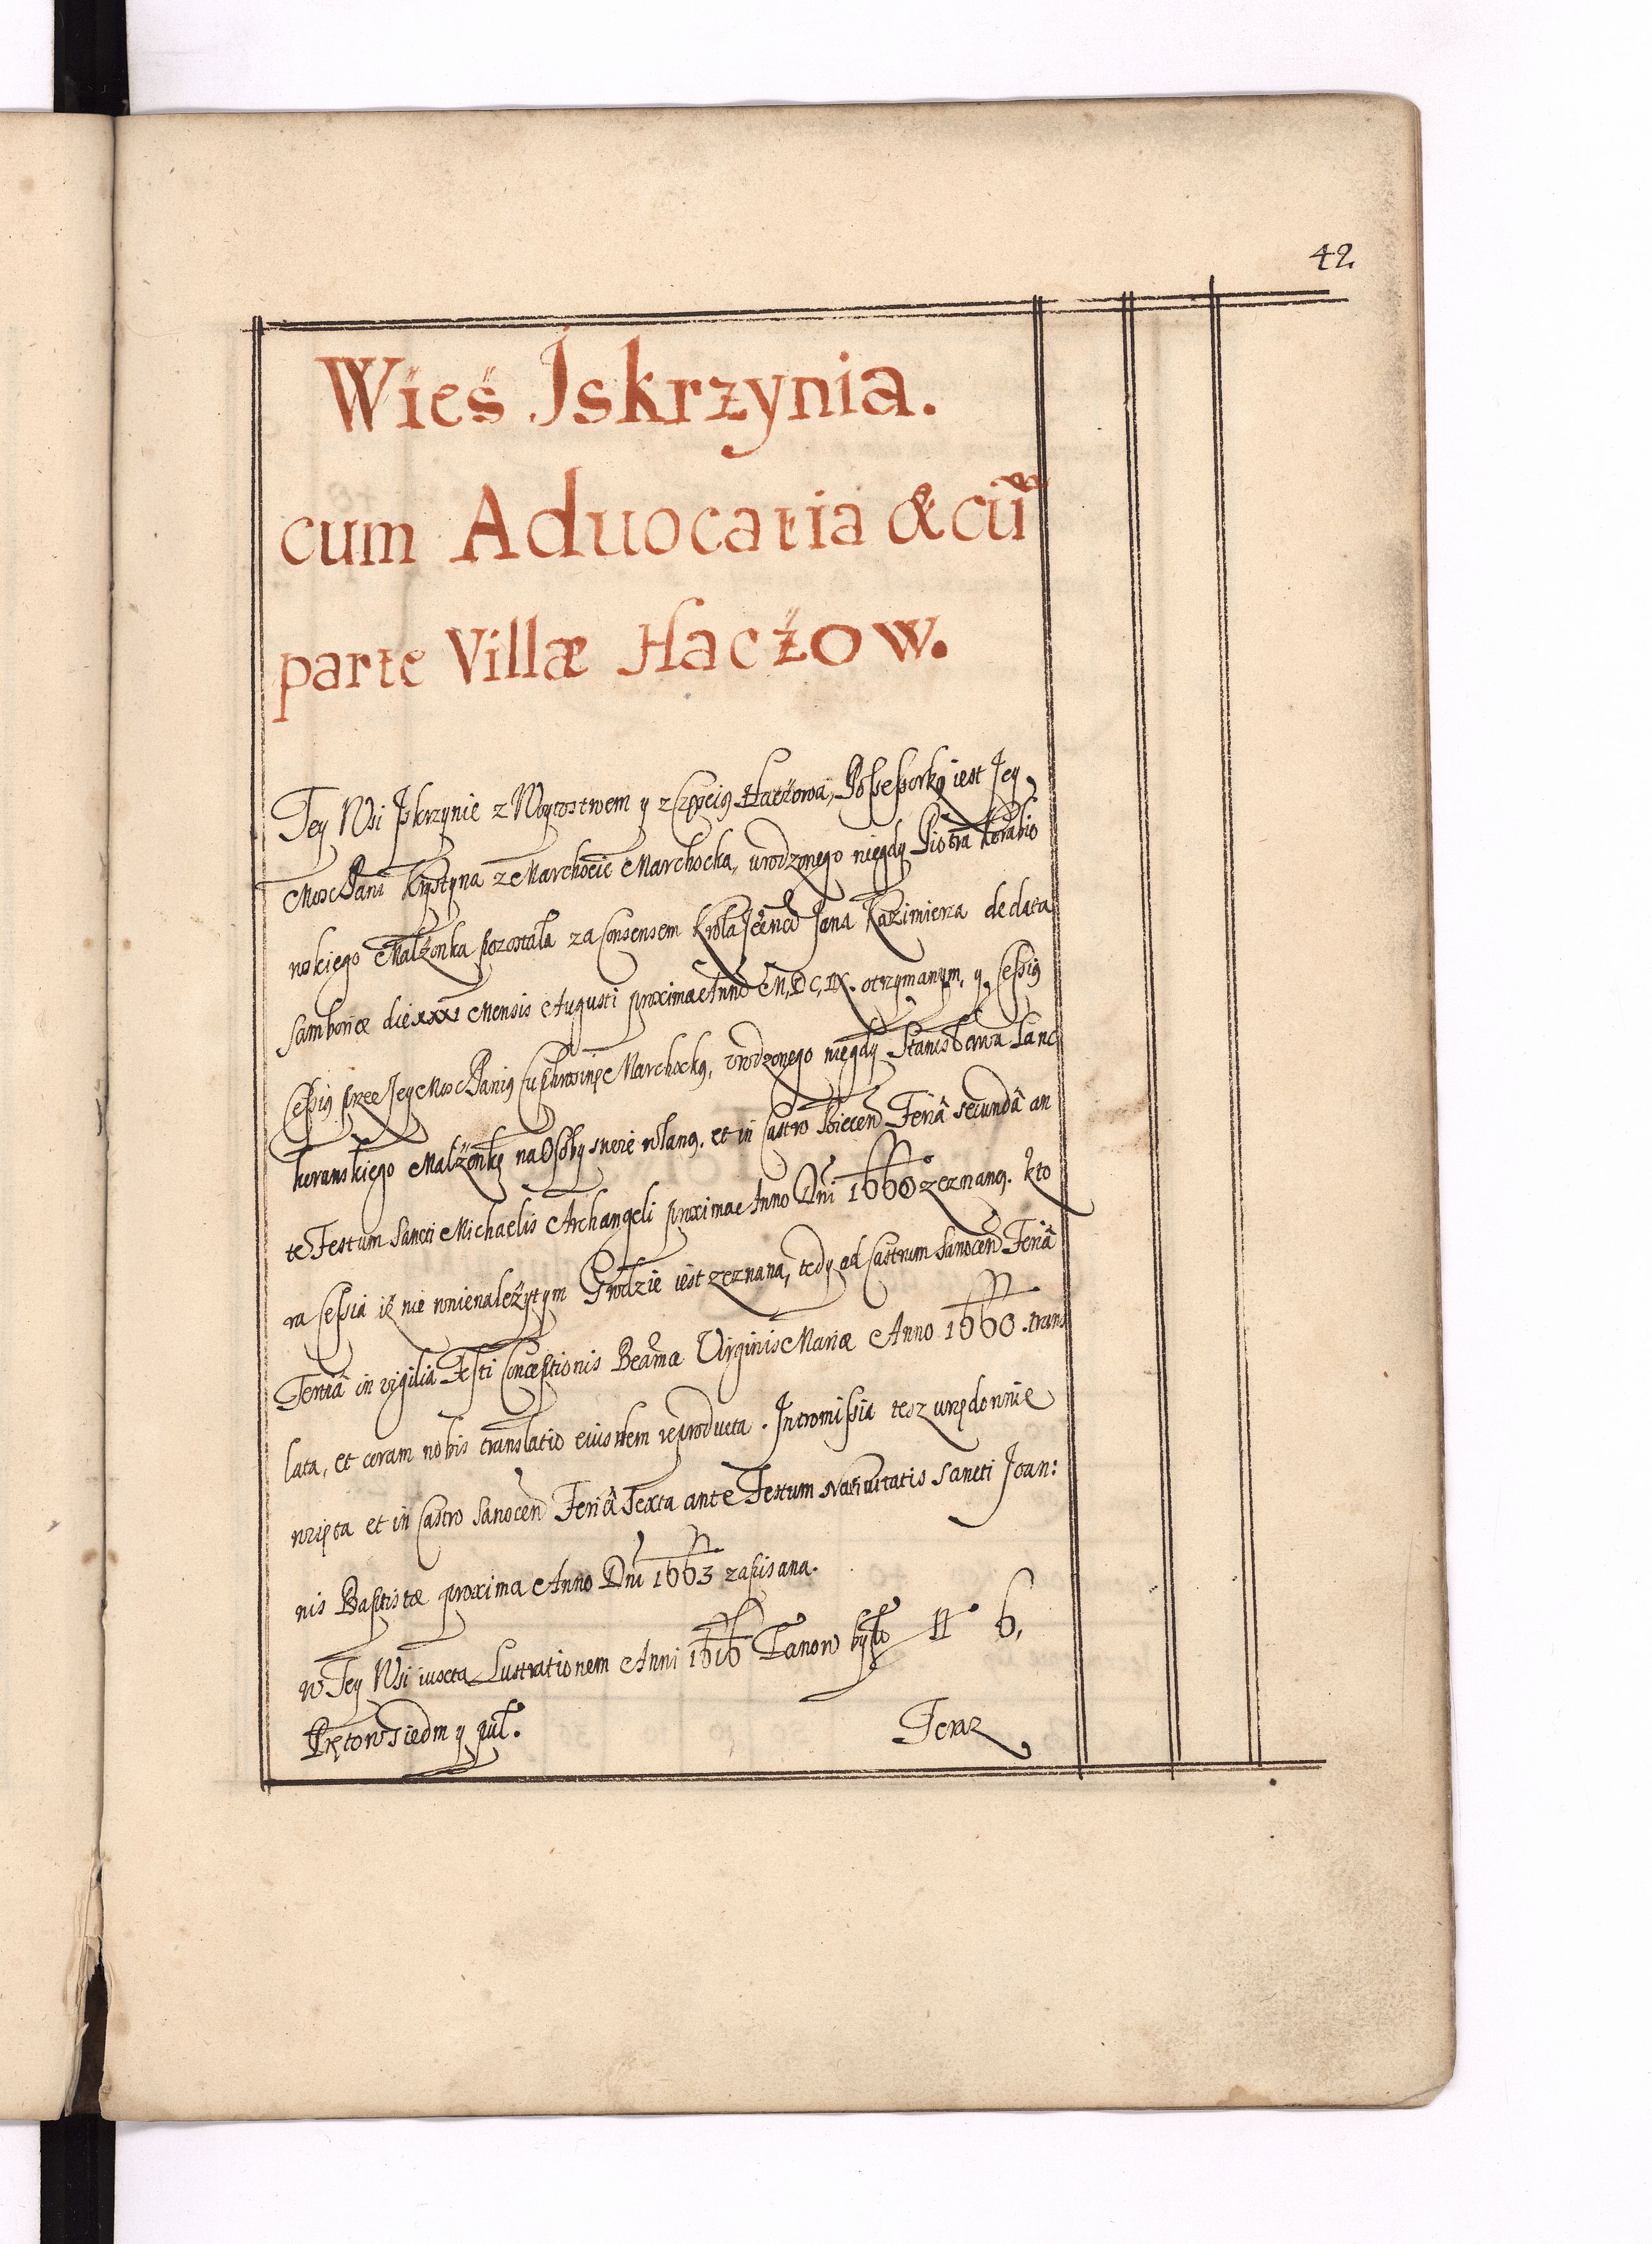 42
Wieś Jskrzynia.
cum Aduocatia & cũ
parte Villæ Haczow.
Tey Wsi Jskrzynie z Woytostwem y z Częścią Haczowa, Possessorką iest Jey
Mosc Pani Krystyna z Marchocic Marchocka, urodzonego niegdy Piotra Korabio
wskiego Małżonka pozostała za Consensem Krola Jana Kazimierza de data
Samboriæ die xxxi Mensis Augusti proxime Anno otrzymanym, y Cessią
Cessią przez Jey Mosc Panią Marchocką, urodzonego niegdy Stanisława Lanc
koronskiego Małżonkę na Osoby swoie wlaną. et in Castro Biecen Feriâ secundâ an
te Festum Sancti Michaelis Archangeli proxime Anno Dni 1660 zeznaną. kto
ra Cessia iż nie wnienależytym Grodzie iest zeznana, tedy ad Castrum Sanocen Feriâ
Tertiâ in vigilia Festi Conceptionis Beatmæ Virginis Mariæ Anno 1660 . trans
lata, et coram nobis translatio eiusdem reproducta . Intromissia tesz urzędownie
wzięta et in Castro Sanocen Feriâ Sexta ante Festum Nativitatis Sancti Joan:
nis Baptistæ proxima Anno Dni 1663 zapisana.
w Tey Wsi iuxta Lustrationem Anni 1616 Łanow było 6,
Prętow siedm y puł.
Teraz